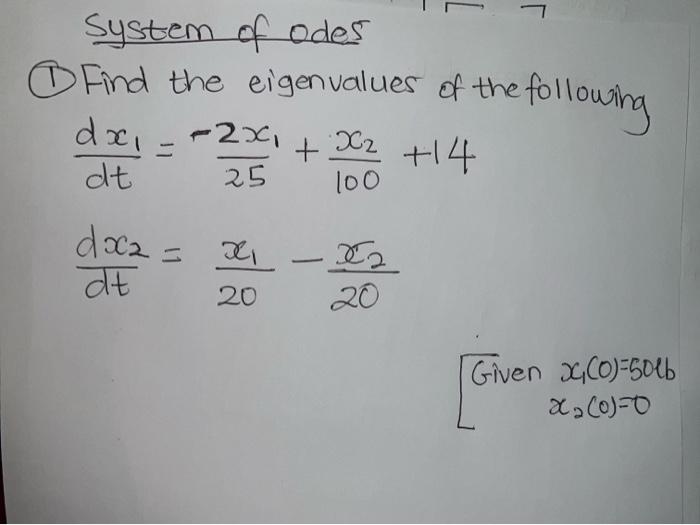 System of odes
① Find the eigenvalues of the following
dx₁/dt = -2x₁/25 + x₂/100 + 14
dx₂/dt = x₁/20 - x₂/20
[Given x₁(0)=50lb
x₂(0)=0